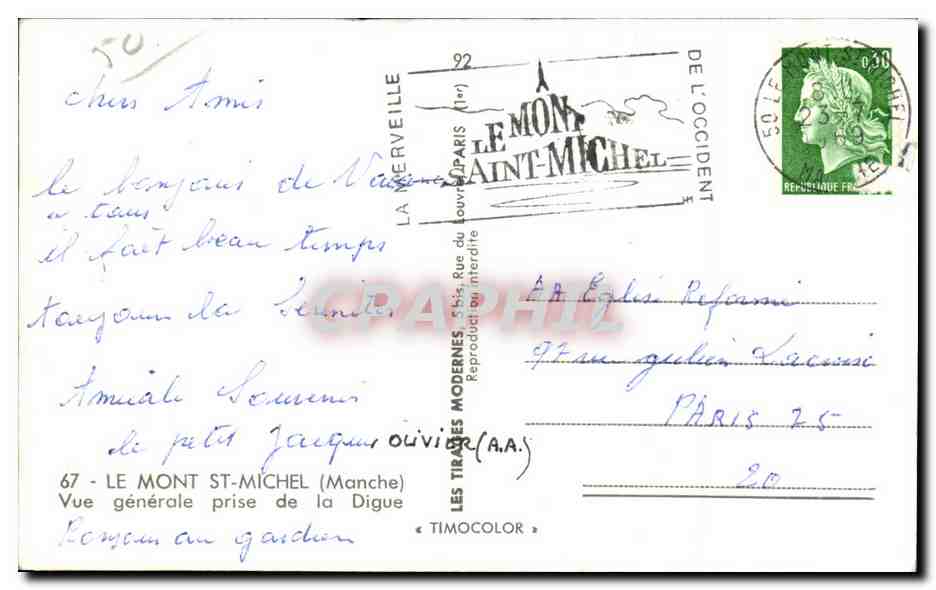 50
chers Amis
le bonjour de Vacances
a tous
il fait beau temps
toujours la Serenite
Amicale Souvenir
le petit Jacques OLIVIER (A.A.)
67 - LE MONT ST-MICHEL (Manche)
Vue générale prise de la Digue
Bonjour au gardien
« TIMOCOLOR »
LES TIRAGES MODERNES, 5 bis, Rue du Louvre, PARIS (1er)
Reproduction interdite
92
LA MERVEILLE
LE MONT
SAINT-MICHEL
DE L'OCCIDENT
50 LE MONT-ST-MICHEL
MANCHE
0,30
REPUBLIQUE FR
AA Eglise Reformé
97 rue Julien Lacroix
PARIS 75
20
CPAPHIL